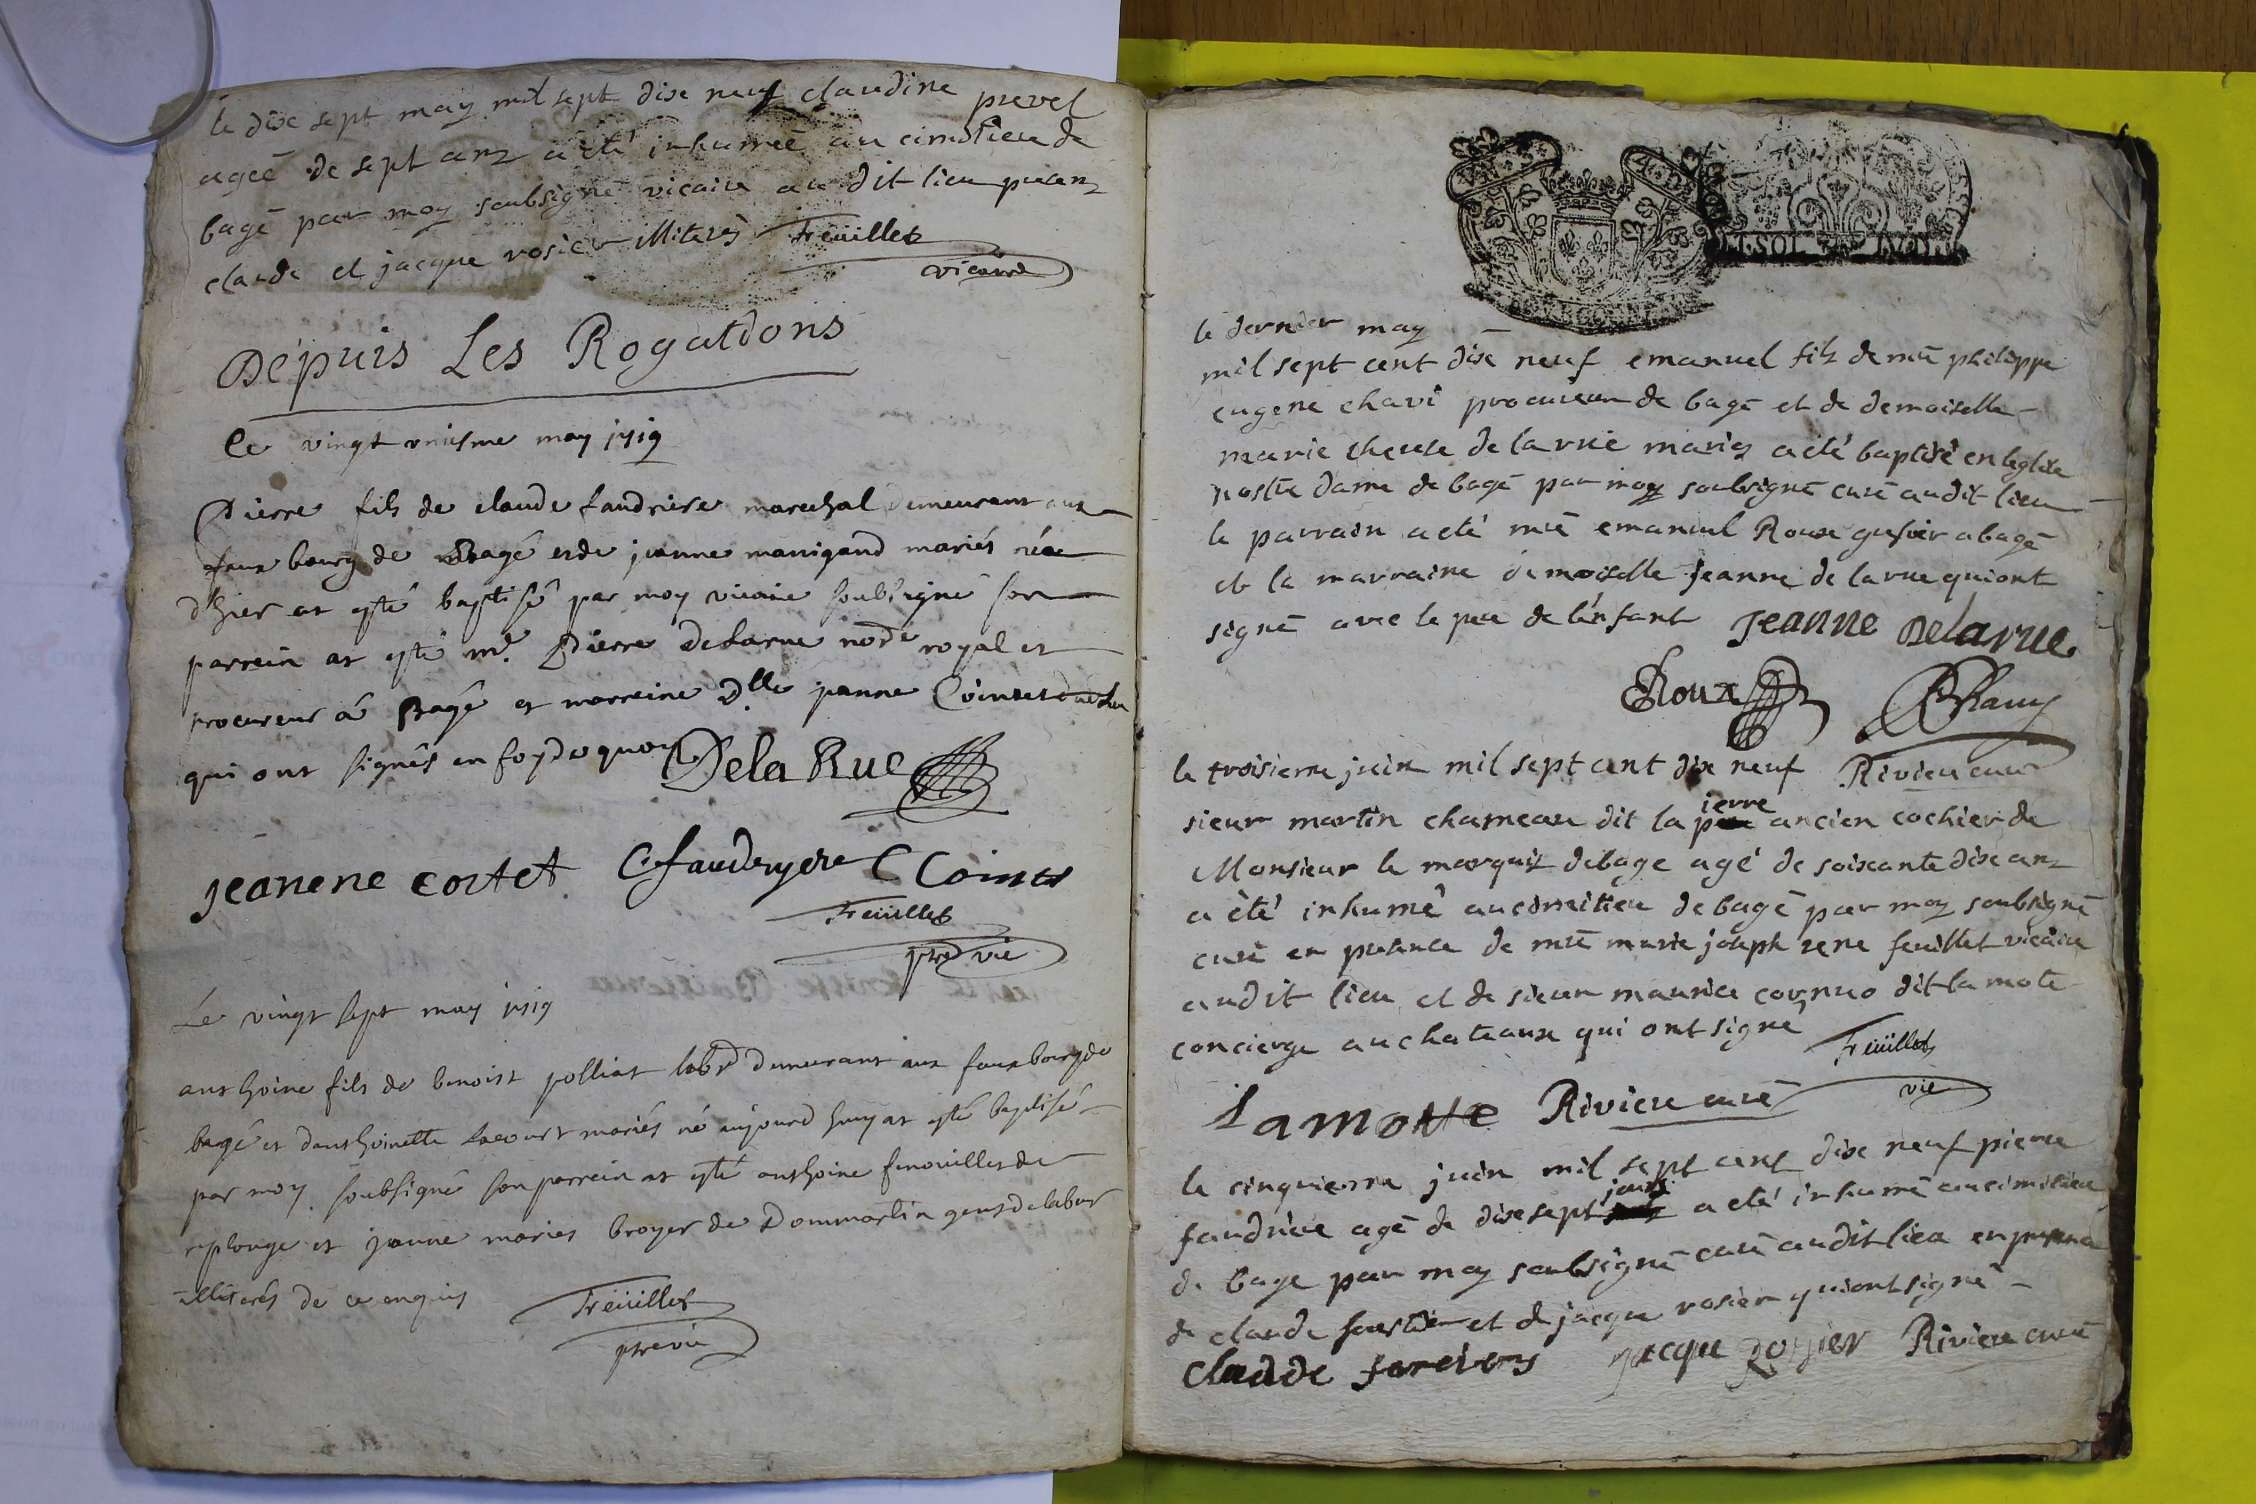 le dixe sept may mil sept dixe neuf claudine prevel
ageé de sept anz a été inhumeé au cimitiere de
bagé par moy soubsigné vicaire au dit lieu presenz
claude et jacque rosier illiterés Freüillet
vicaire
Dépuis Les Rogatdons
Le vingt uniesme may 1719
Pierre fils de claude faudriere marechal demeurant aux
faux bourg de Bagé et de jeanne mangand mariés née
d'hier at esté baptisé par moy vicaire soubsigné son
parrein at esté mr. Pierre Delarue nore royal et
procureur á Bagé et marreine Dlle janne Cointet
qui ont signés en foy de quoy De la Rue
Jeanene cortet C faudryere C Cointet
Freüillet
ptre vic
Le vingt sept may 1719
anthoine fils de benoist polliat labr demeurant aux faux bourg de
bagé et danthoinette Lacourt mariés né aujourd huy at esté baptisé
par moy soubsigné son parrein at esté anthoine fenouillet de
replonge et janne maries broyer de Dommartin gens de labur
illiterés de ce enquis Freüillet
ptre vic
le dernier may
mil sept cent dixe neuf emanuel filz de mre philippe
eugene chavi procureur de bagé et de demoiselle
marie therese de la rue mariez a été baptisé en leglise
nostre dame de bagé par moy soubsigné curé audit lieu
le parrain a été mre emanuel Roux grefier a bagé
et la marraine demoiselle Jeanne de la rue qui ont
signé avec le pere de lénfant Jeanne Delarue
Roux Chavy
le troisieme juin mil sept cent dixe neuf Riviere curé
ierre
sieur martin chameau dit la p ancien cochier de
Monsieur le marquiz de bage agé de soixante dixe anz
a été inhumé au cimitiere de bagé par moy soubsigné
curé en presence de mre marie joseph rene feuillet vicaire
audit lieu et de sieur maurice cornuo dit la mote
concierge au chateaux qui ont signé Freüillet
vic
Lamotte Riviere curé
le cinquieme juin mil sept cent dixe neuf pierre
jours
faudriere agé de dixe sept a été inhumé au cimitiere
de bage par moy soubsigné curé audit lieu en presence
de claude et de jacque rosier qui ont signé
claude jacque rosier Riviere curé